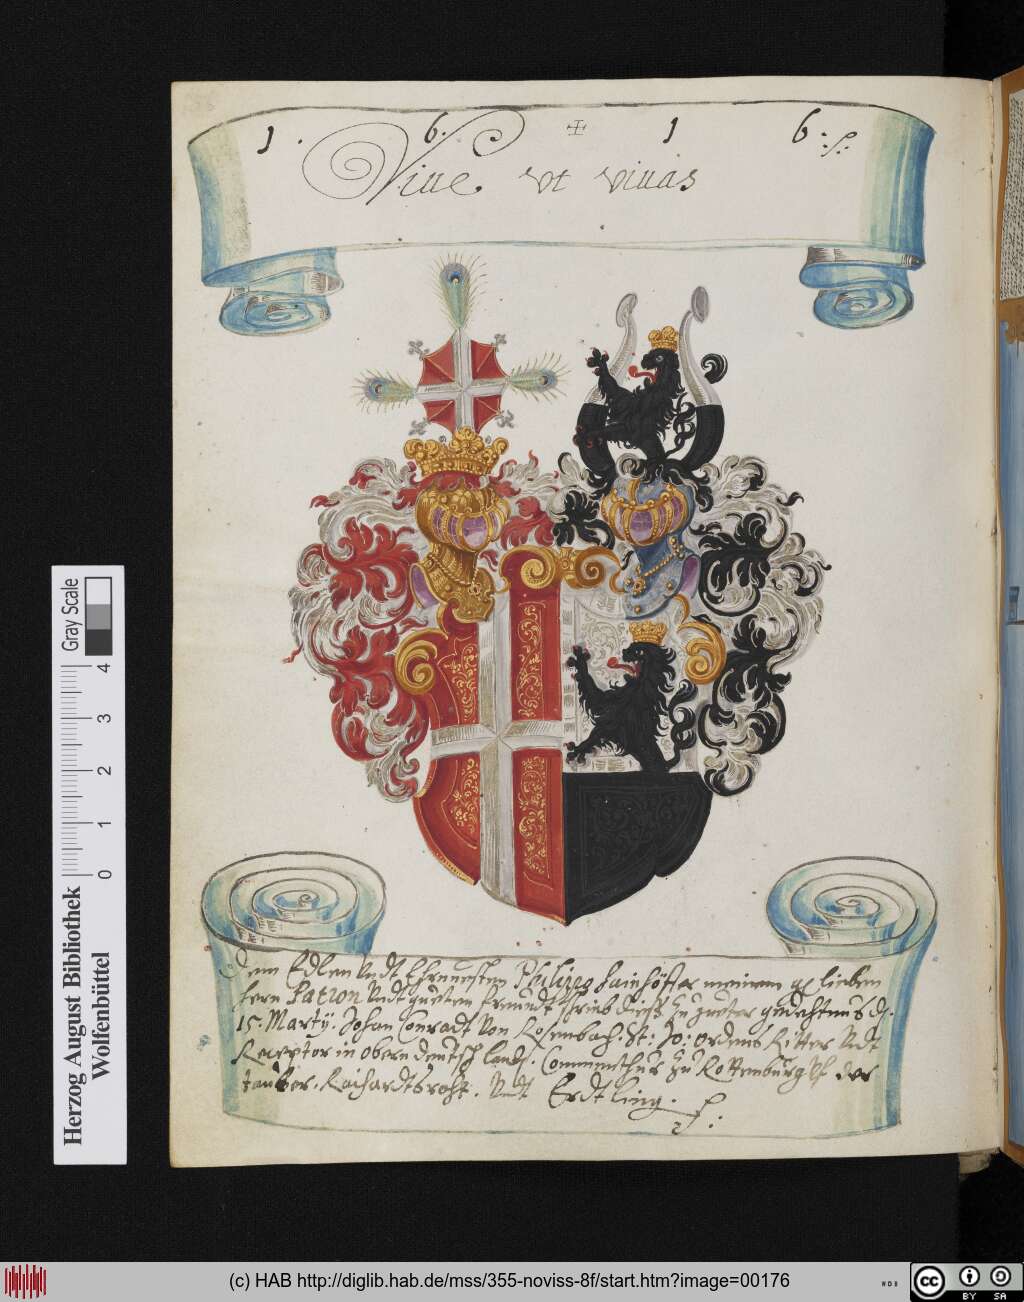 1. 6. 1 6 :
Viue vt viuas
Dem Edlen Vndt Ehrnuesten Philippo hainhoffer meinem gelieben
hern Patron Vndt guetem freundt schrieb dises zu gueter gedechtnus d.
15. Martÿ. Johan Conradt Von Rosenbach. St: Jo: ordens Ritter Vndt
Receptor in obern deutschlandt. Commenthur zu Rottenburg der
tauber. Raichardtsroht. Vndt Erdtling.
Herzog August Bibliothek
Wolfenbüttel
0 1 2 3 4
Gray Scale
(c) HAB http://diglib.hab.de/mss/355-noviss-8f/start.htm?image=00176
WDB
cc BY SA